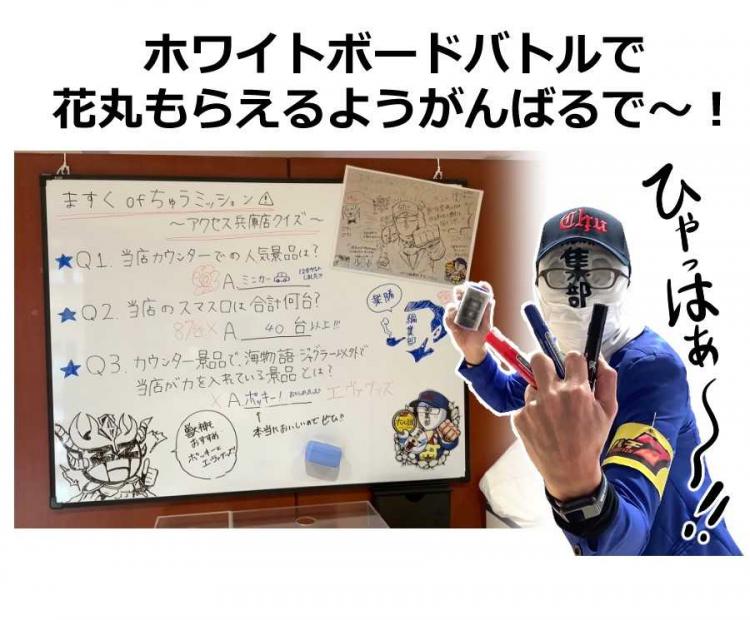 ホワイトボードバトルで
花丸もらえるようがんばるで～！
ますく of ちゅうミッション
～アクセス兵庫店クイズ～
★Q1. 当店カウンターでの人気景品は？
A ミニカー
★Q2. 当店のスマスロは合計何台？
87台× A 40 台以上!!!
★Q3. カウンター景品で、海物語・ジャグラー以外で
当店が力を入れている景品とは？
×A ポッキー！ エヴァグッズ
↑
本当においしいのでぜひ!!
獣神も
おすすめ
ポッキーと
エヴァグッズ
Chu
集
部
ひゃっはぁ～～!!